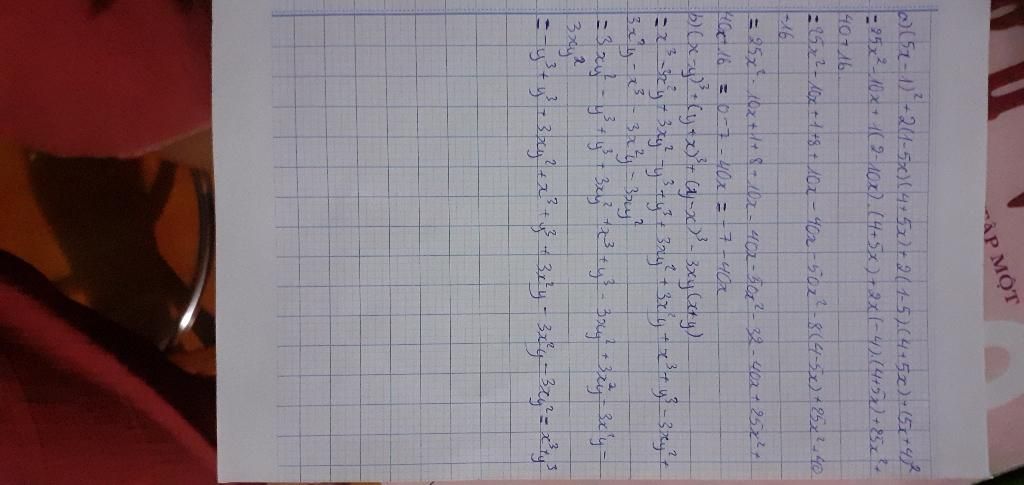 a) (5x-1)² + 2(1-5x)(4+5x) + 2(1-5)(4+5x) + (5x+4)²
= 25x² - 10x + 1 (2-10x).(4+5x) + 2x(-4).(4+5x) + 25x² +
40 + 16
= 25x² - 10x + 1 + 8 + 10x - 40x - 50x² - 8(4-5x) + 25x² + 40
+16
= 25x² - 10x + 1 + 8 + 10x - 40x - 50x² - 32 - 40x + 25x² +
40x + 16 = 0 - 7 - 40x = -7 - 40x
b) (x-y)³ + (y+x)³ + (y-x)³ - 3xy(x+y)
= x³ - 3x²y + 3xy² - y³ + y³ + 3xy² + 3x²y + x³ + y³ - 3xy² +
3x²y - x³ - 3x²y - 3xy²
= 3xy² - y³ + y³ + 3xy² + x³ + y³ - 3xy² + 3x²y - 3x²y -
3xy²
= - y³ + y³ + 3xy² + x³ + y³ + 3x²y - 3x²y - 3xy² = x³ + y³
TẬP MỘT